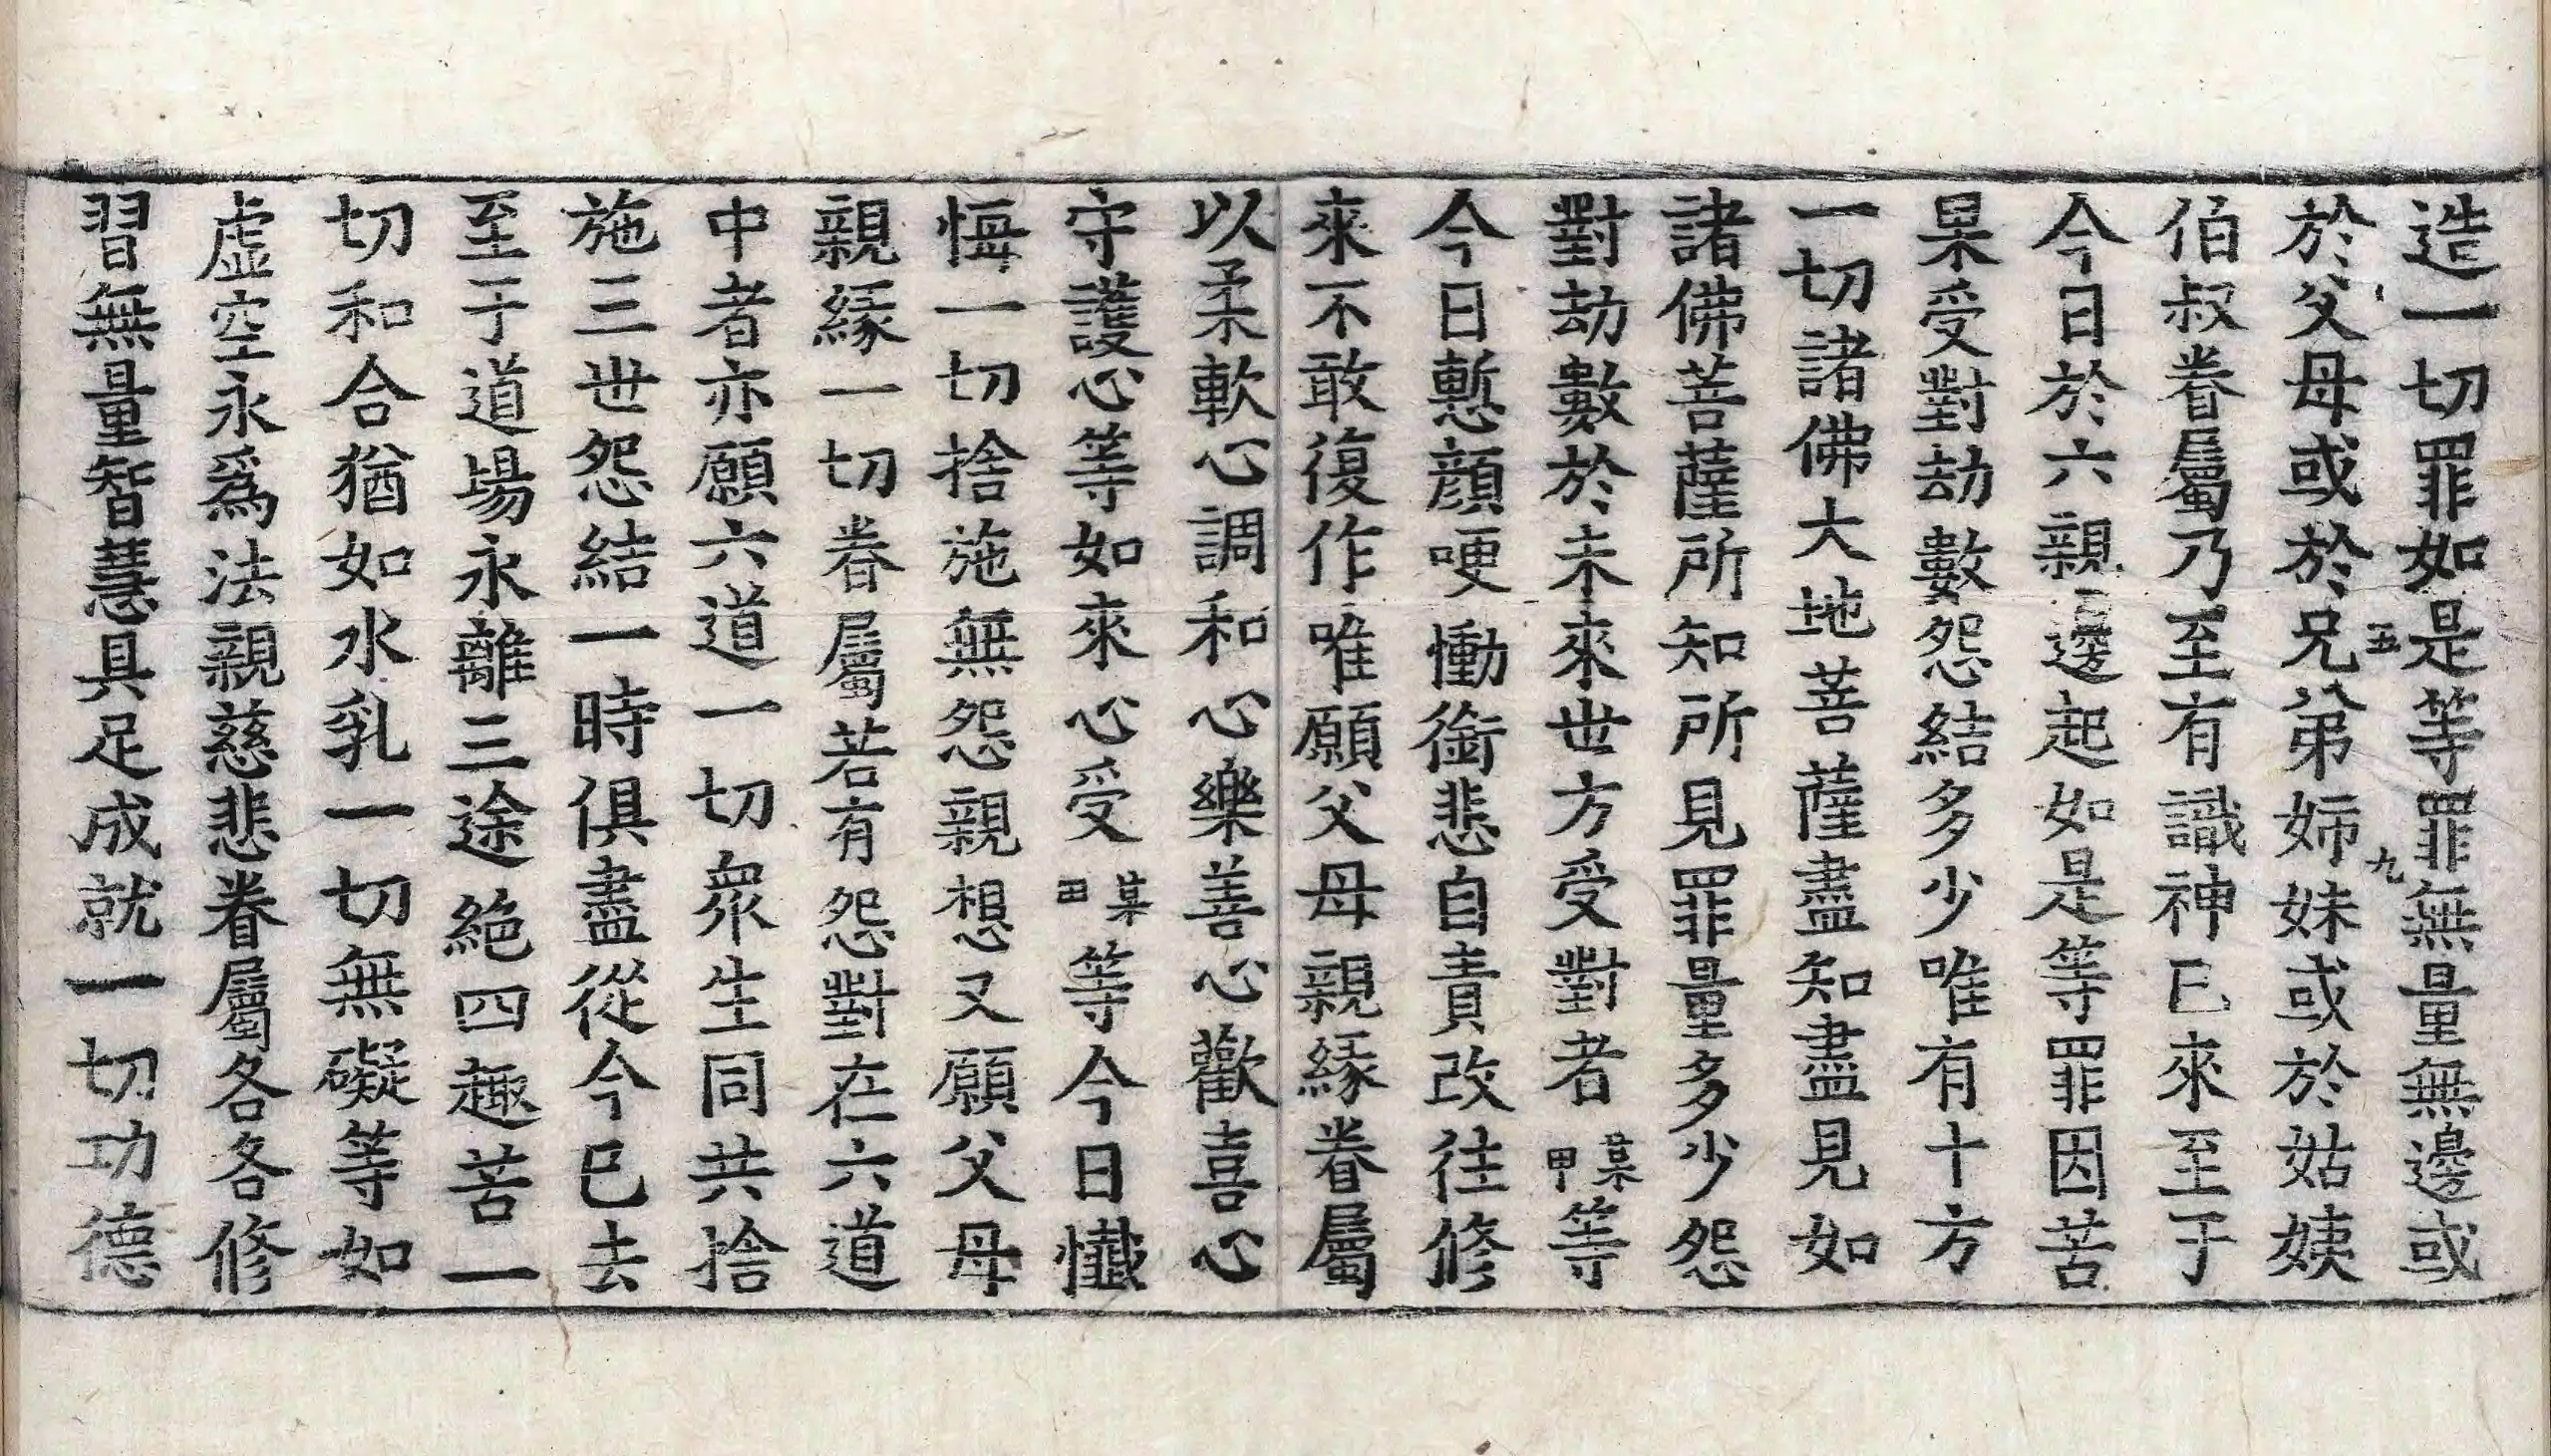 造一切罪如是等罪無量無邊或
五 九
於父母或於兄弟姊妹或於姑姨
伯叔眷屬乃至有識神已來至于
今日於六親邊起如是等罪因苦
果受對劫數怨結多少唯有十方
一切諸佛大地菩薩盡知盡見如
諸佛菩薩所知所見罪量多少怨
對劫數於未來世方受對者某甲等
今日慙顔哽慟銜悲自責改往修
來不敢復作唯願父母親緣眷屬
以柔軟心調和心樂善心歡喜心
守護心等如來心受某甲等今日懺
悔一切捨施無怨親想又願父母
親緣一切眷屬若有怨對在六道
中者亦願六道一切衆生同共捨
施三世怨結一時俱盡從今已去
至于道場永離三途絕四趣苦一
切和合猶如水乳一切無礙等如
虛空永爲法親慈悲眷屬各各修
習無量智慧具足成就一切功德